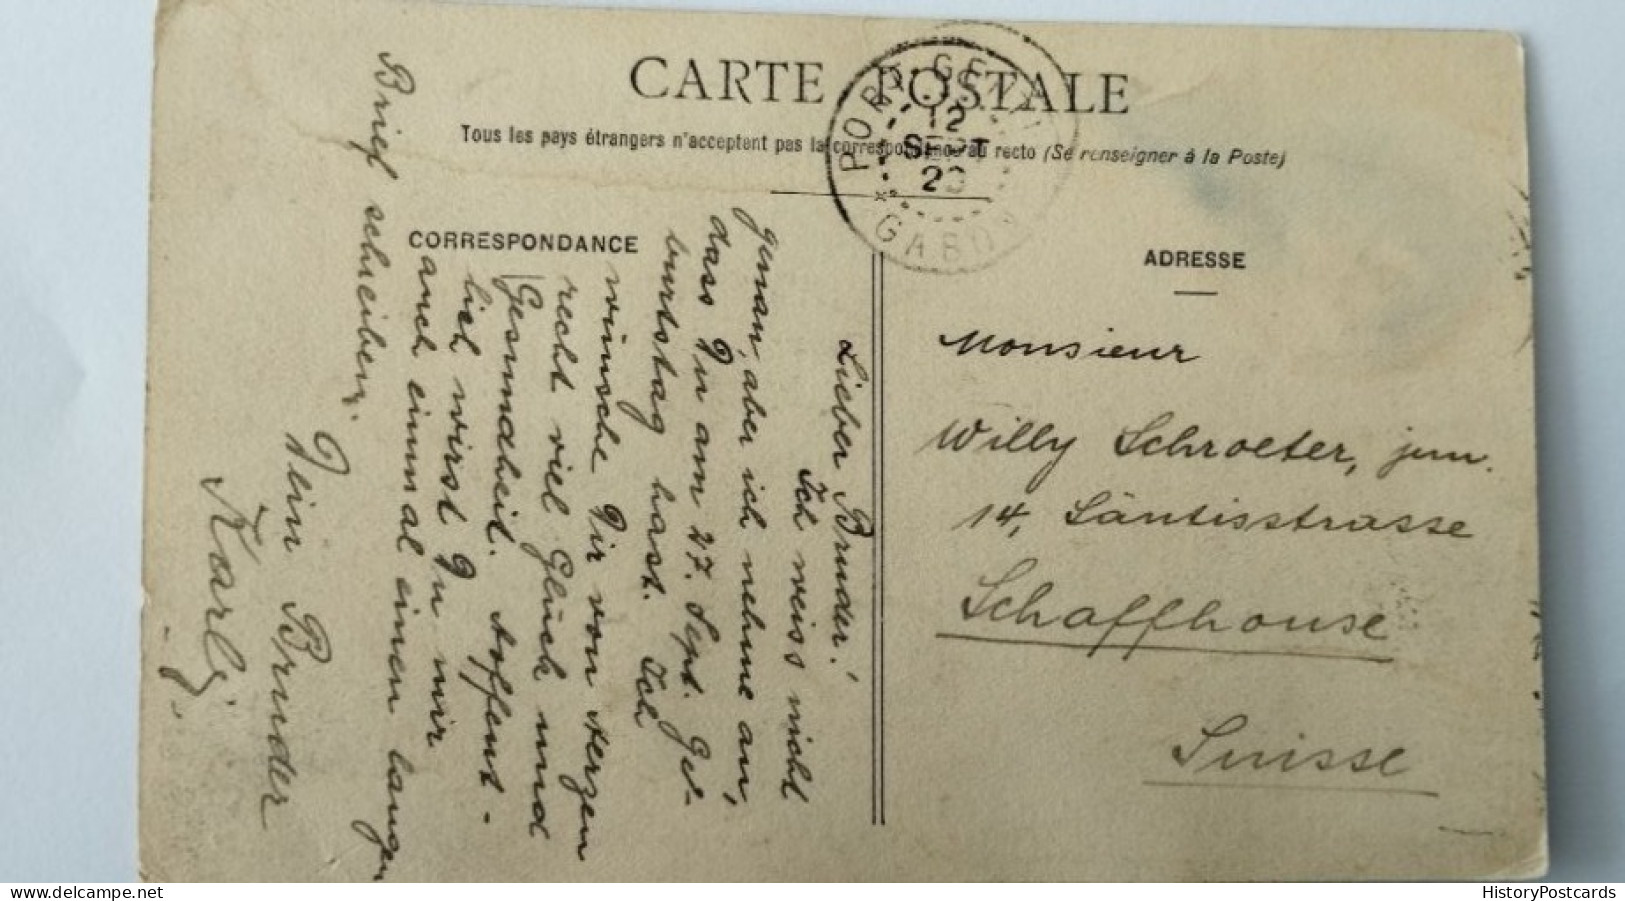 CARTE POSTALE
Tous les pays étrangers n'acceptent pas la correspondance au recto (Se renseigner à la Poste)
PORT-GENTIL
12
SEPT
GABON
CORRESPONDANCE
Lieber Bruder!
Ich weiss nicht
genau, aber ich nehme an,
dass Du am 27. Sept. Ge-
burtstag hast. Ich
wünsche Dir von Herzen
recht viel Glück und
Gesundheit. Hoffent-
lich wirst Du mir
auch einmal einen langen
Brief schreiben.
Dein Bruder
Karly
ADRESSE
Monsieur
Willy Schroeter, jun.
14, Säntisstrasse
Schaffhouse
Suisse
delcampe.net
HistoryPostcards